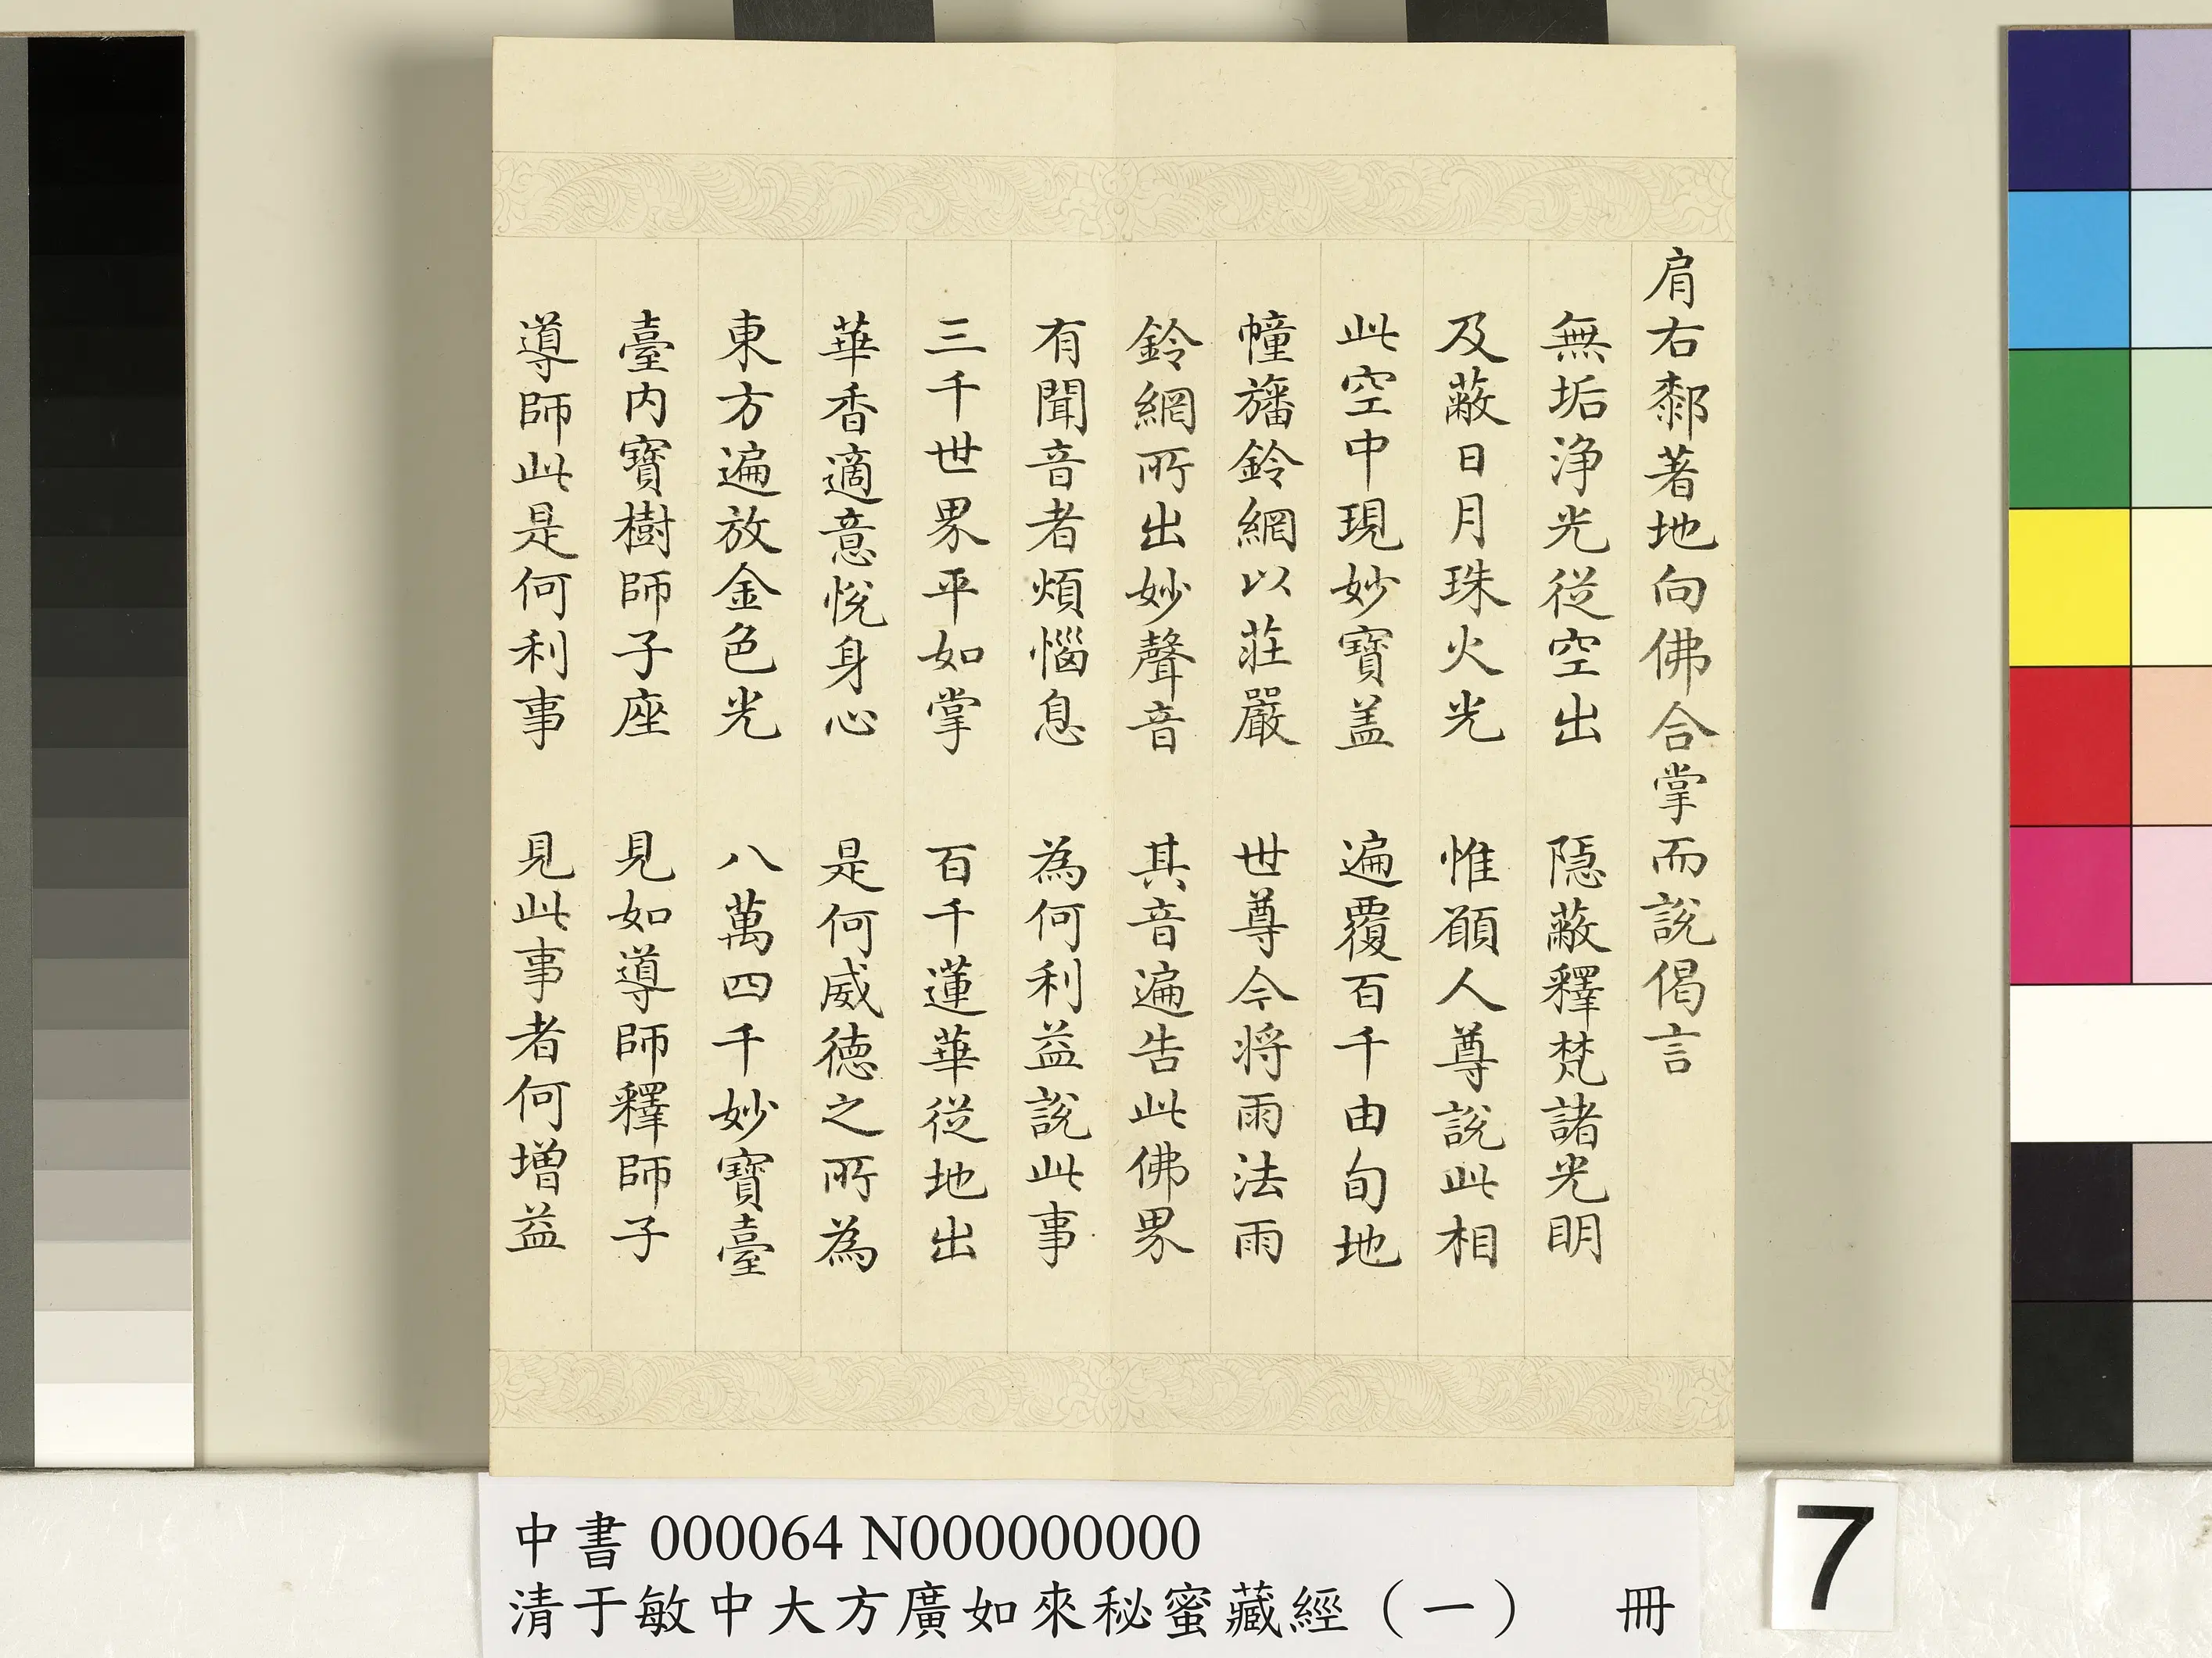 肩右䣛著地向佛合掌而說偈言
無垢淨光從空出　隱蔽釋梵諸光明
及蔽日月珠火光　惟願人尊說此相
此空中現妙寶盖　遍覆百千由旬地
幢旛鈴網以莊嚴　世尊今將雨法雨
鈴網所出妙聲音　其音遍告此佛界
有聞音者煩惱息　為何利益說此事
三千世界平如掌　百千蓮華從地出
華香適意悅身心　是何威德之所為
東方遍放金色光　八萬四千妙寶臺
臺内寶樹師子座　見如導師釋師子
導師此是何利事　見此事者何增益
中書 000064 N000000000
清于敏中大方廣如來秘蜜藏經（一）　冊
7